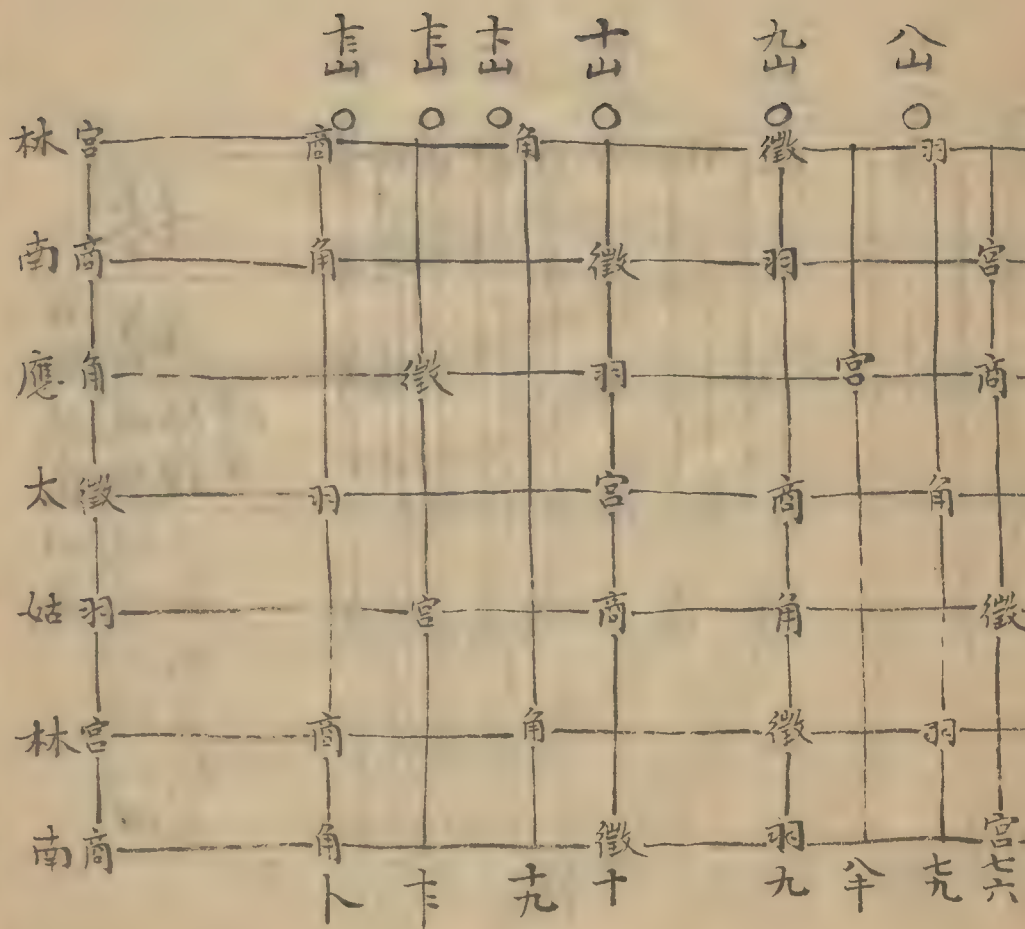 十三山 十二山 十一山 十山 九山 八山
林 宮 商 角 徵 羽
南 商 角 徵 羽 宮
應 角 徵 羽 宮 商
太 徵 羽 宮 商 角
姑 羽 宮 商 角 徵
林 宮 商 角 徵 羽
南 商 角 徵 羽 宮
卜 十二 十九 十 九 八半 七九 七六